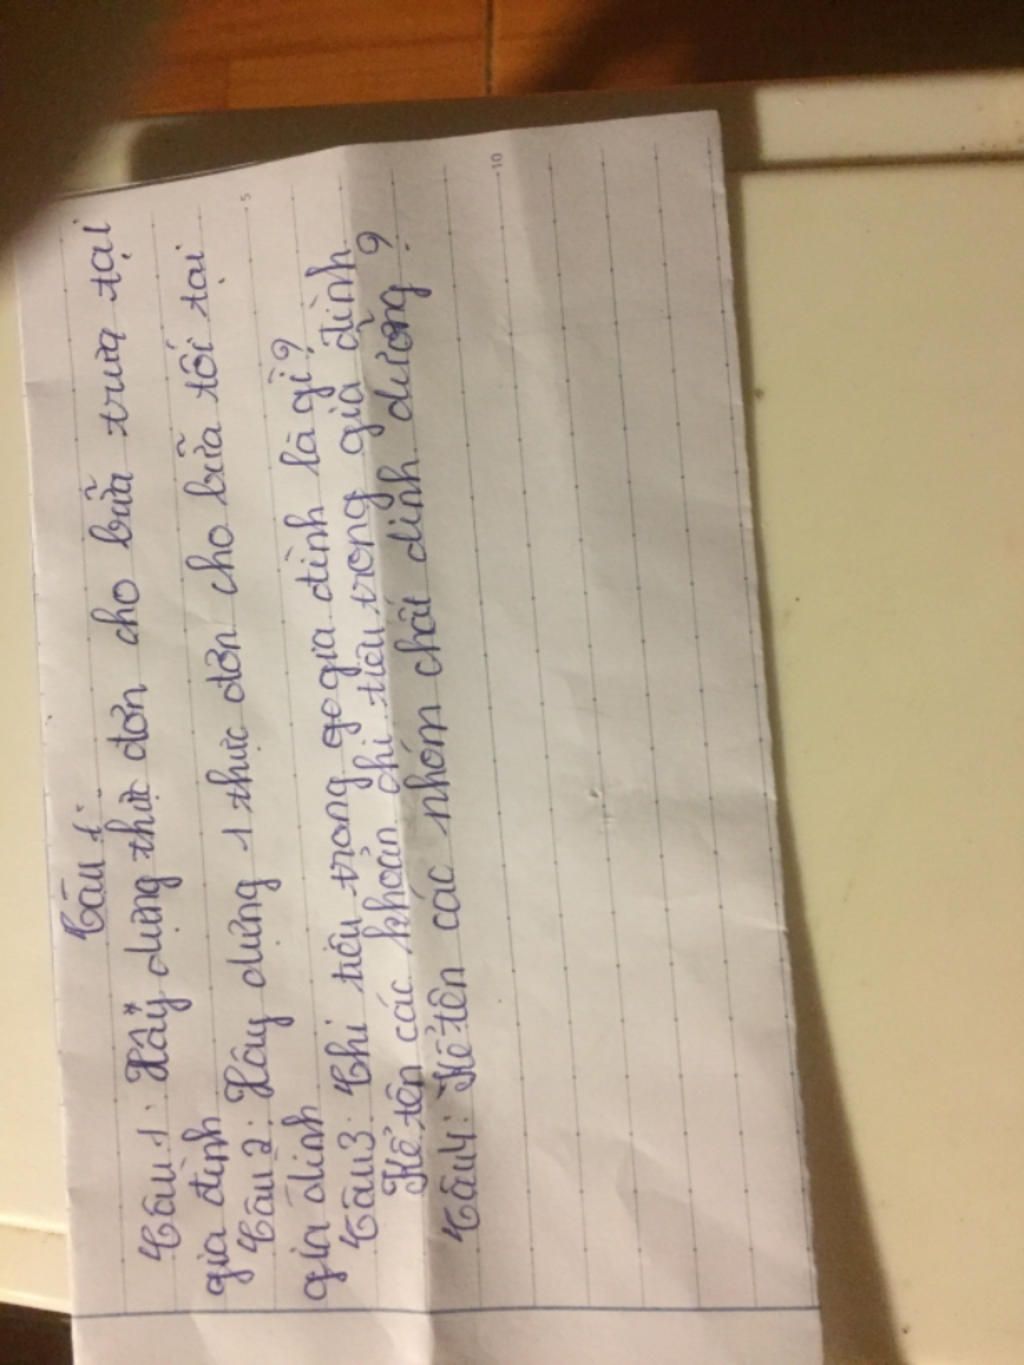 Câu 1:
Câu 1: Xây dựng thực đơn cho bữa trưa tại
gia đình
Câu 2: Xây dựng 1 thực đơn cho bữa tối tại
gia đình
Câu 3: Chi tiêu trong go gia đình là gì?
Kể tên các khoản chi tiêu trong gia đình?
Câu 4: Kể tên các nhóm chất dinh dưỡng?
5
10